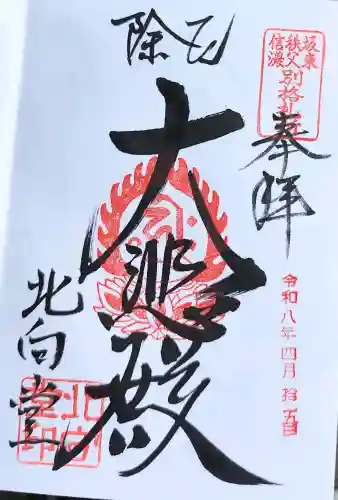 坂東
秩父
信濃
別格札所
奉拝
令和八年四月拾五日
厄除
大悲殿
北向堂
北向
堂印